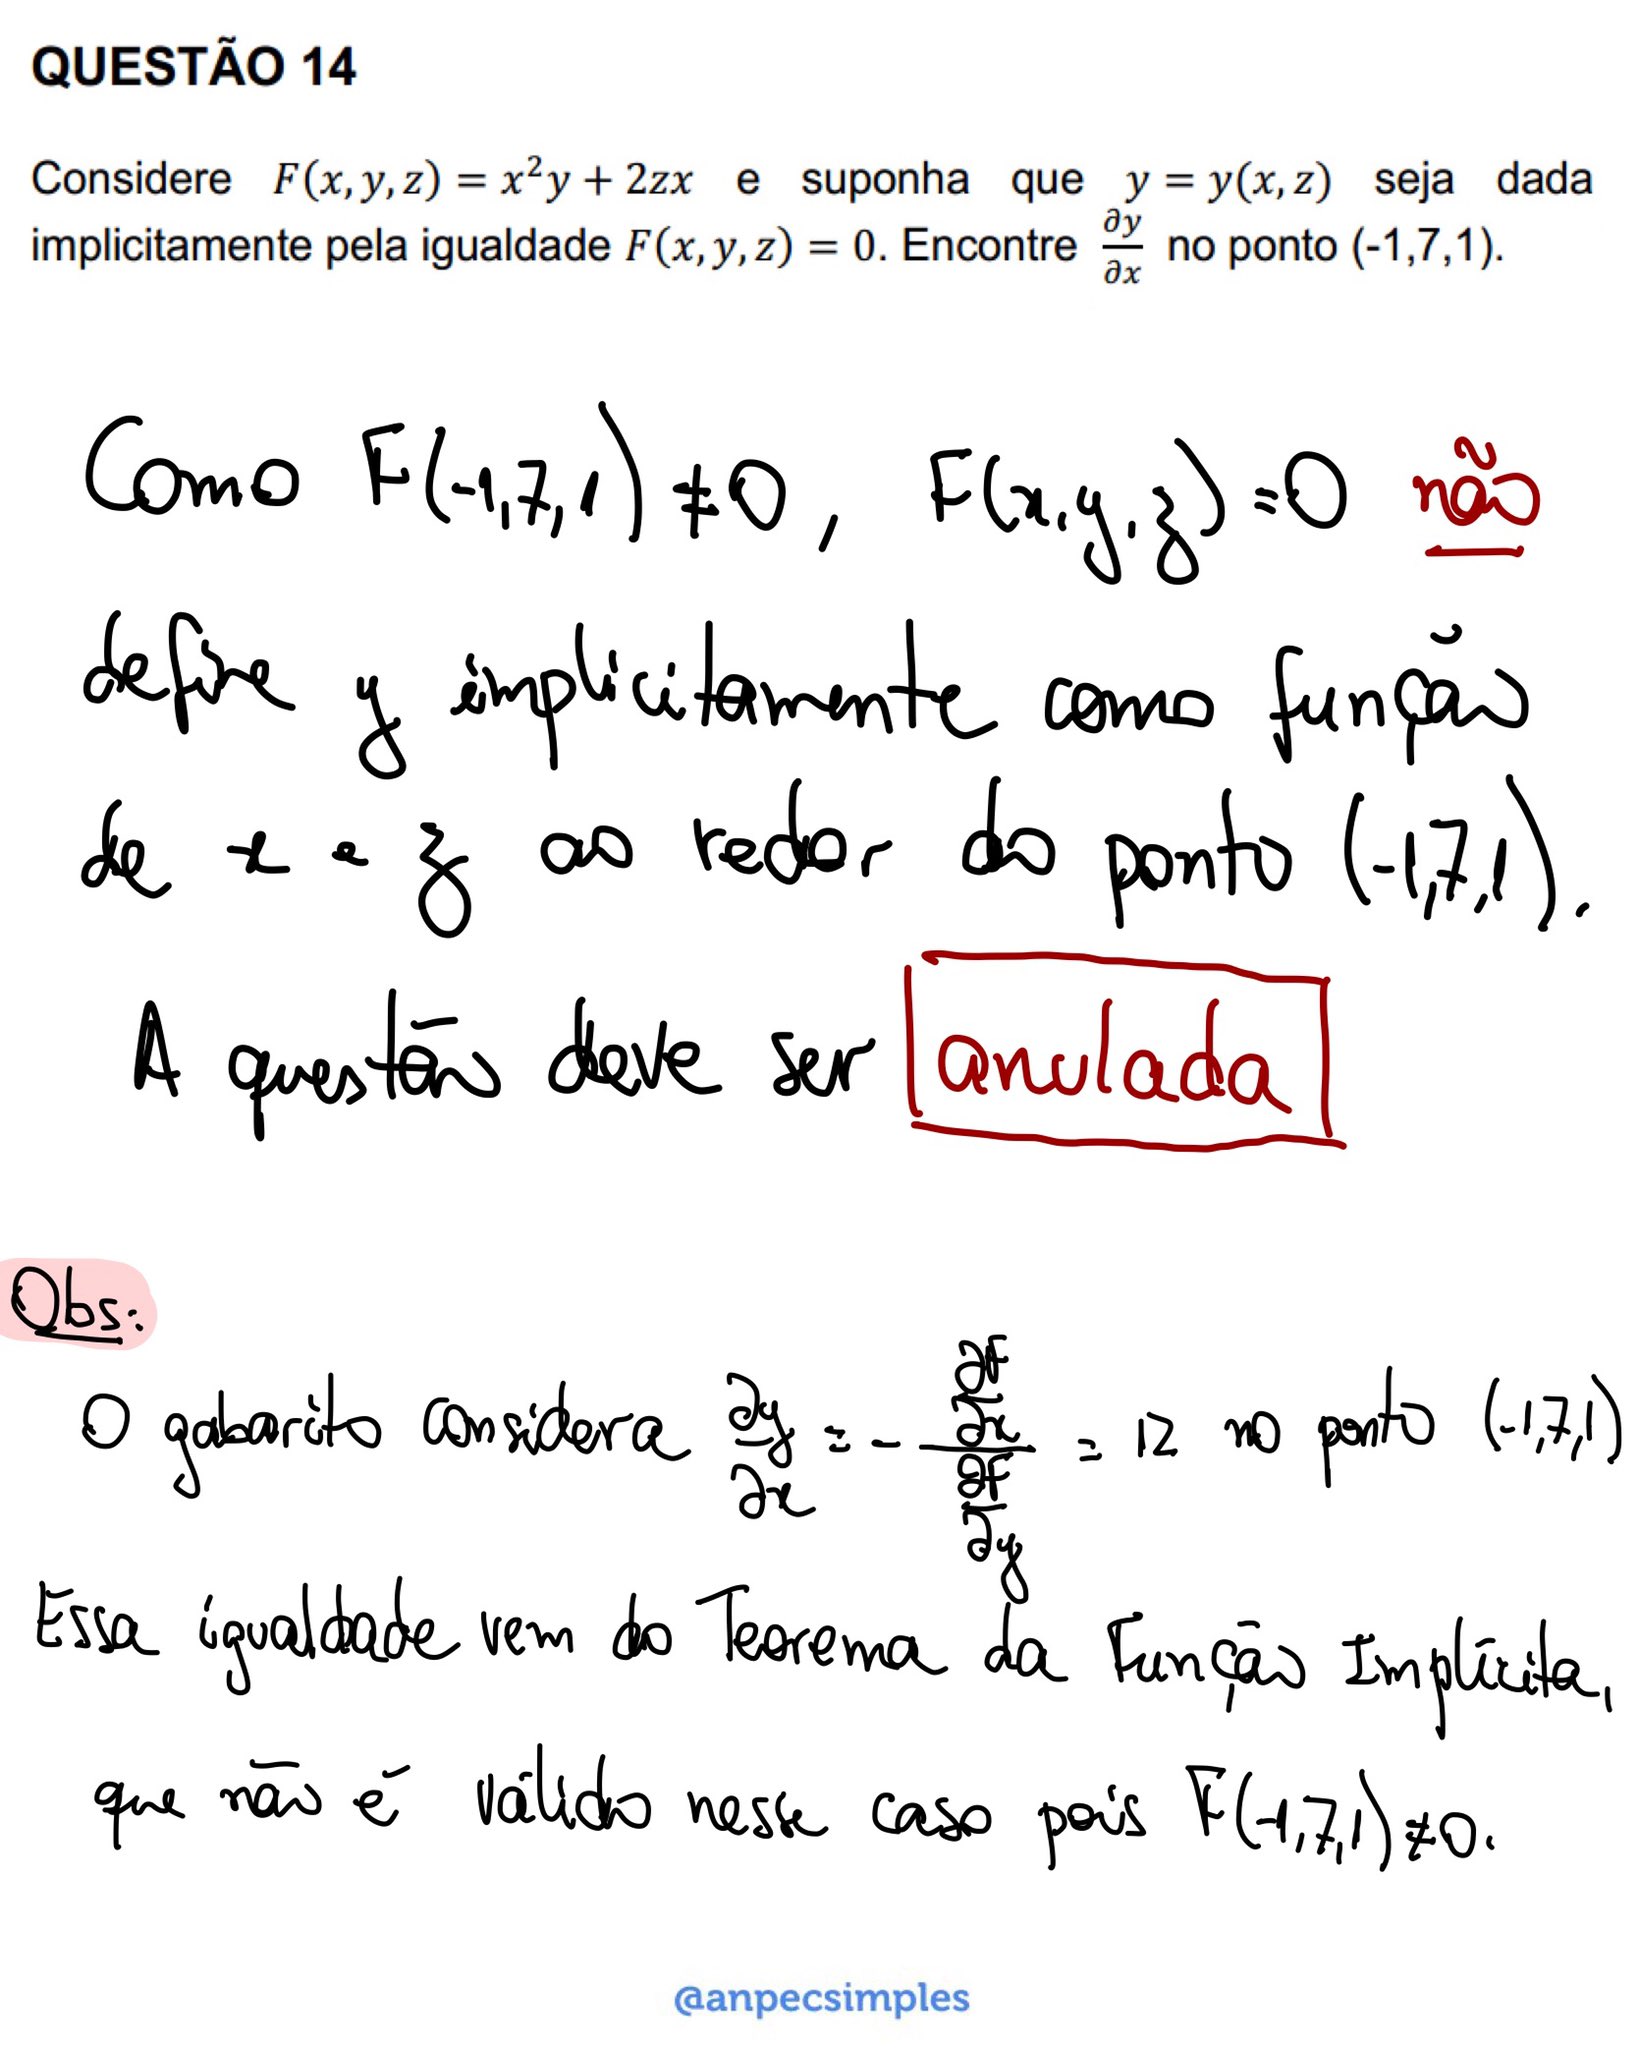 QUESTÃO 14
Considere F(x, y, z) = x²y + 2zx e suponha que y = y(x, z) seja dada
implicitamente pela igualdade F(x, y, z) = 0. Encontre ∂y/∂x no ponto (-1,7,1).
Como F(-1,7,1) ≠ 0, F(x,y,z) = 0 não
define y implicitamente como função
de x e z ao redor do ponto (-1,7,1).
A questão deve ser anulada
Obs:
O gabarito considera ∂y/∂x = - (∂F/∂x)/(∂F/∂y) = 12 no ponto (-1,7,1)
Essa igualdade vem do Teorema da Função Implícita,
que não é válido nesse caso pois F(-1,7,1) ≠ 0.
@anpecsimples